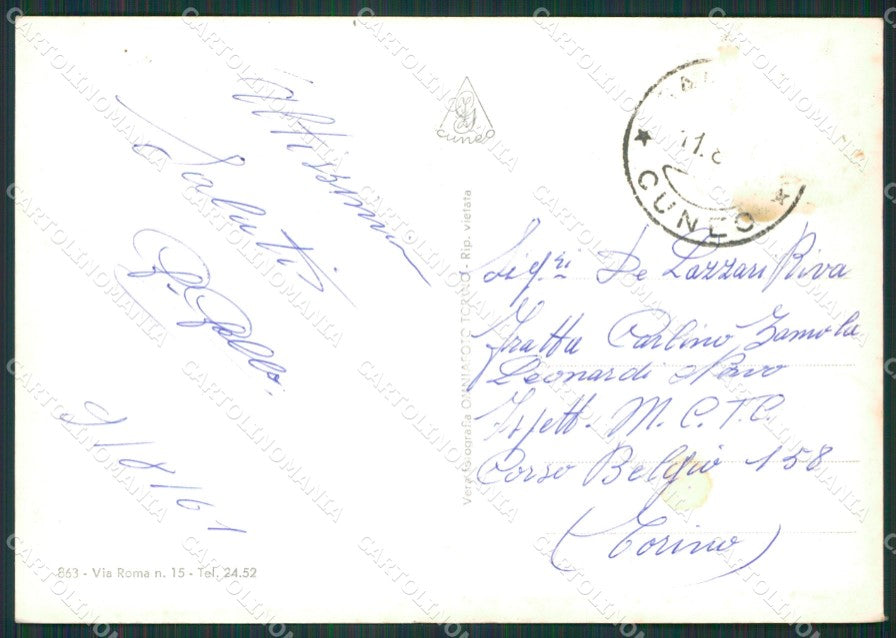 Affissimi
Saluti
G. Gallo.
9/8/61
863 - Via Roma n. 15 - Tel. 24.52
cuneo
Vera Fotografia OMNIAFOTO TORINO - Rip. vietata
11.8
CUNEO
Sigri De Lazzari Riva
Fratta Carlino Zamola
Leonardi Navo
Ispett. M.C.T.C.
Corso Belgio 158
(Torino)
CARTOLINOMANIA